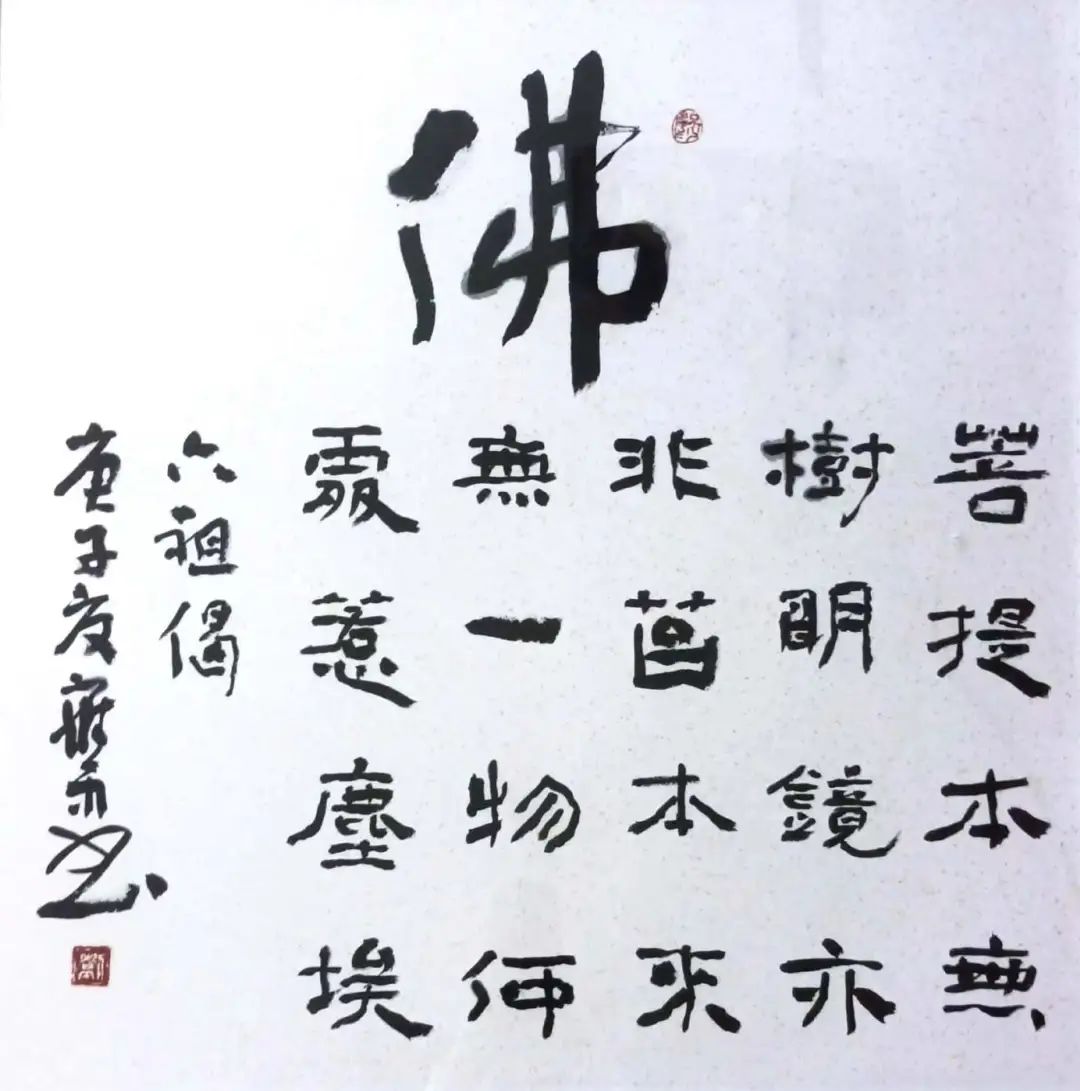 佛
菩提本無
樹明鏡亦
非臺本來
無一物何
處惹塵埃
六祖偈
庚子夏书